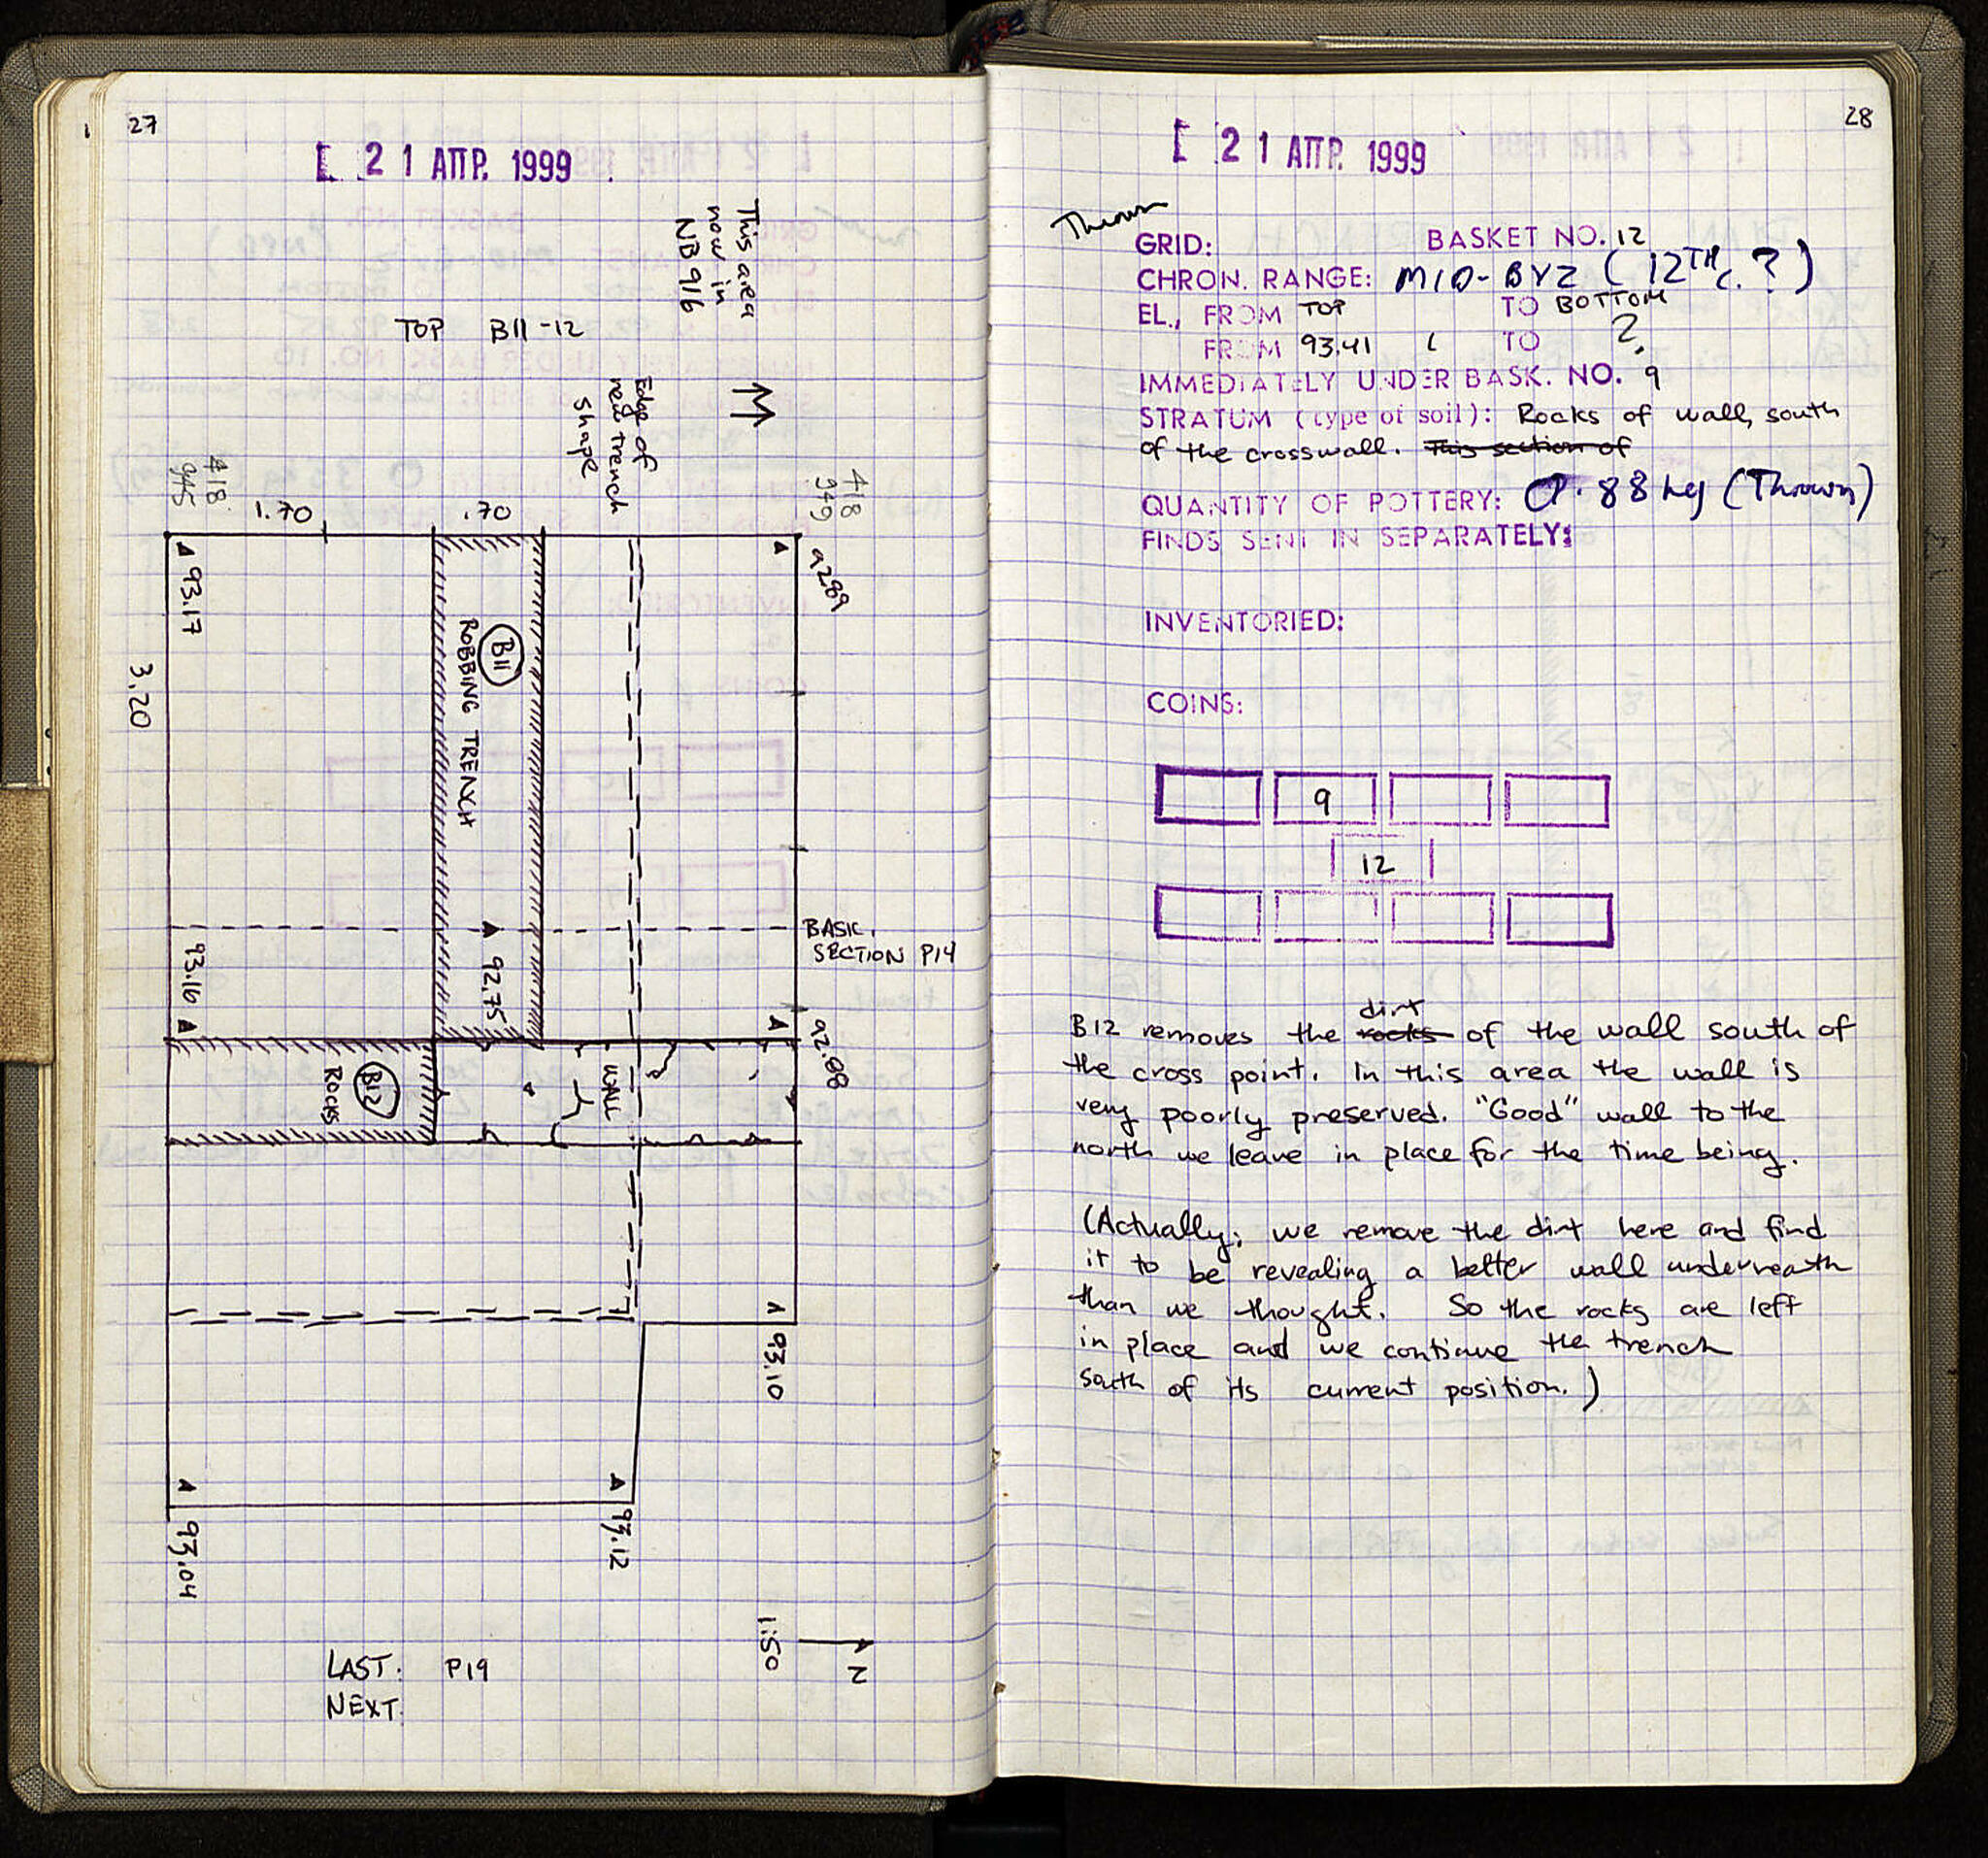 27
[ 21 ΑΠΡ. 1999
This area
now in
NB 916
TOP B11-12
Edge of
new trench
shape
418
945
1.70
.70
418
949
93.17
9289
3.20
B11
ROBBING TRENCH
BASK.
SECTION P14
92.75
93.16
92.88
B12
ROCKS
WALL
93.10
93.04
93.12
1:50
N
LAST: P19
NEXT
28
[ 21 ΑΠΡ. 1999
Thrown
GRID: BASKET NO. 12
CHRON. RANGE: MID-BYZ (12TH c. ?)
EL., FROM TOP TO BOTTOM
FROM 93.41 TO ?
IMMEDIATELY UNDER BASK. NO. 9
STRATUM (type of soil): Rocks of wall, south
of the crosswall. This section of
QUANTITY OF POTTERY: 0.88 kg (Thrown)
FINDS SENT IN SEPARATELY:
INVENTORIED:
COINS:
9
12
dirt
B12 removes the rocks of the wall south of
the cross point. In this area the wall is
very poorly preserved. "Good" wall to the
north we leave in place for the time being.
(Actually; we remove the dirt here and find
it to be revealing a better wall underneath
than we thought. So the rocks are left
in place and we continue the trench
south of its current position.)